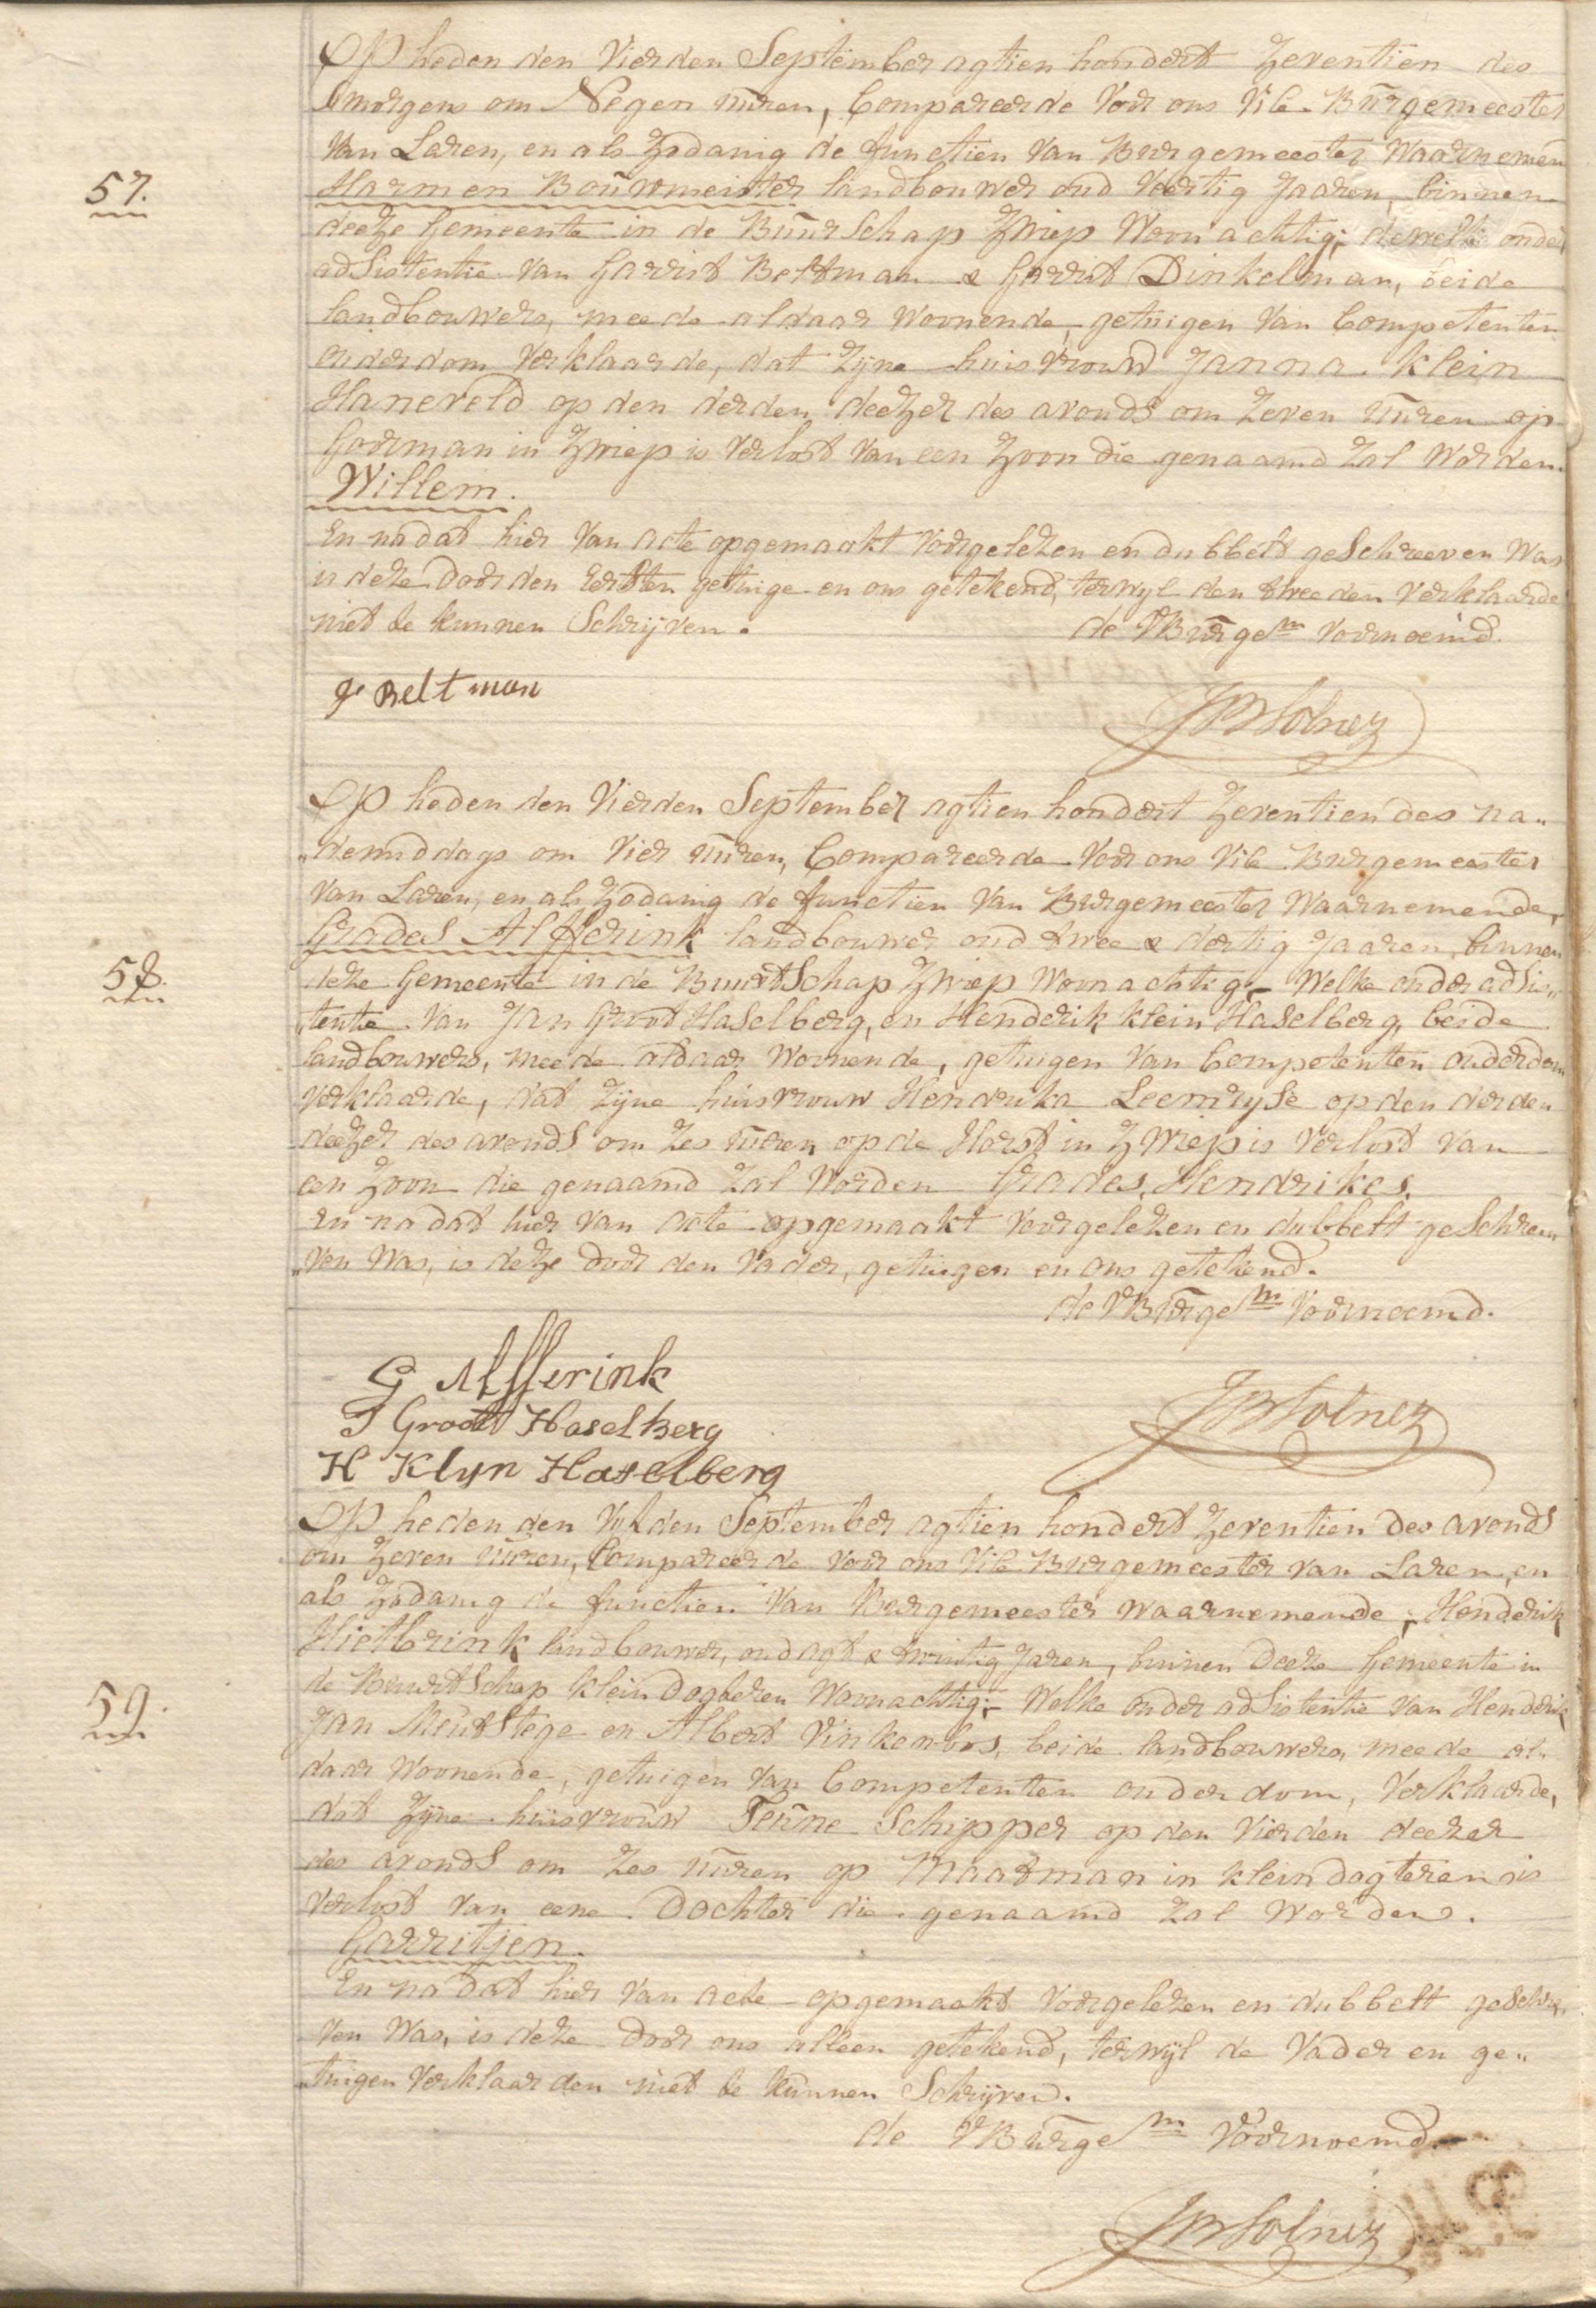 Op heden den Vierden September agtien hondert Zeventien des
smorgens om Negen uuren, Compareerde Voor ons Vice Burgemeester
Van Laren, en als Zodanig de functien Van Burgemeester Waarnemen
57.
Harmen Bouwmeister landbouwer oud Veertig Jaaren, binnen
deeze Gemeente in de Buurschap Zwiep Woonachtig; dewelke onder
adsistentie Van Garrit Beltman & Garrit Dinkelman, beide
landbouwers, meede aldaar Woonende, getuigen Van Competenten
ouderdom Verklaarde, dat Zyne huisvrouw Janna Klein
Haneveld op den derden deezer des avonds om Zeven uuren op
Goorman in Zwiep is Verlost Van een Zoon die genaamd Zal Worden
Willem.
En na dat hier Van acte opgemaakt Voorgelezen en dubbelt geSchreeven Was
is deze door den Eersten getuige en ons getekend, terwyl den tweeden Verklaarde
niet te kunnen Schrijven.
de VBurgem Voornoemd.
G Beltman
Op heden den Vierden September agtien hondert Zeventien des na„
„demiddags om Vier uuren, Compareerde Voor ons Vice Burgemeester
Van Laren, en als Zodanig de functien Van Burgemeester Waarnemende,
58.
Grades Alfferink landbouwer oud twee & dertig Jaaren, binnen
deze Gemeente in de BuurtSchap Zwiep Woonachtig; Welke onder adsis„
„tentie Van Jan Groot Haselberg, en Henderik Klein Haselberg, beide
landbouwers, meede aldaar Woonende, getuigen Van Competenten ouderdom
Verklaarde, dat Zyne huisvrouw Hendrika Leemryse op den derden
deezer des avonds om Zes uuren op de Horst in Zwiep is Verlost Van
een Zoon die genaamd Zal Worden Grades, Hendrikes.
En na dat hier Van acte opgemaakt Voorgelezen en dubbelt geSchree„
„ven Was, is deze door den Vader, getuigen en ons getekend.
de VBurgem Voornoemd.
G Alfferink
J Groott Haselberg
H Klyn Haselberg
Op heden den Vyfden September agtien hondert Zeventien des avonds
om Zeven uuren, Compareerde Voor ons Vice Burgemeester Van Laren, en
als Zodanig de functien Van Burgemeester Waarnemende; Henderik
59.
Hietbrink landbouwer, oud agt & twintig Jaren, binnen deeze Gemeente in
de BuurtSchap Klein Dogteren Woonachtig; Welke onder adsistentie Van Henderik
Jan MeutStege en Albert Vinkenbos, beide landbouwers, meede al„
daar Woonende, getuigen Van Competenten ouderdom, Verklaarde,
dat Zyne huisvrouw Teune Schipper op den Vierden deezer
des avonds om Zes uuren op Maatman in Klein dogteren is
Verlost Van eene Dochter die genaamd Zal Worden.
Garritjen.
En na dat hier Van acte opgemaakt Voorgelezen en dubbelt geSchre„
Ven Was, is deze door ons alleen getekend, terwyl de Vader en ge„
„tuigen Verklaarden niet te kunnen Schrijven.
de VBurgem Voornoemd.